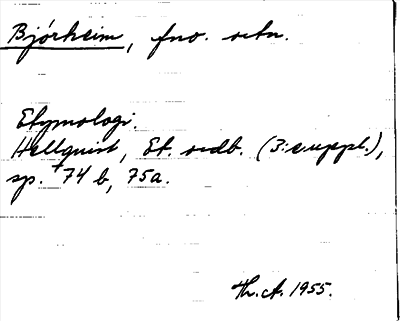 Bjórheim, fno. ortn.
Etymologi.
Hellquist, Et. ordb. (3:e uppl.),
sp. 74 b, 75a.
Th. A. 1955.